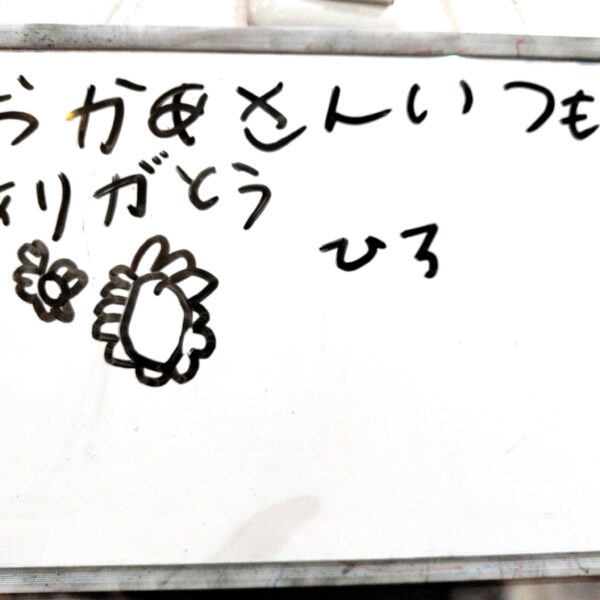 おかあさんいつも
ありがとう
ひろ